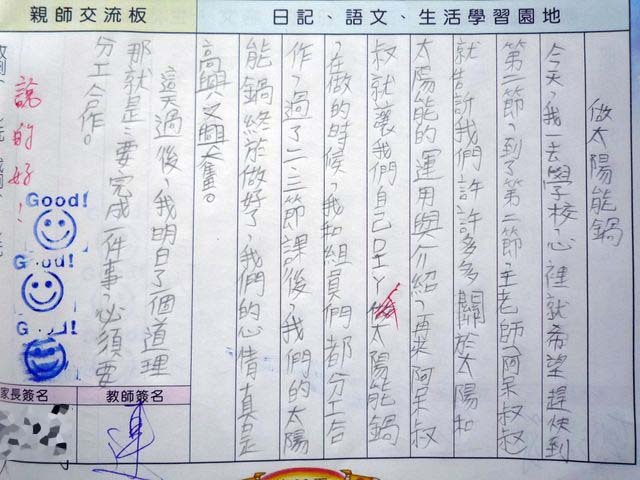 日記、語文、生活學習園地
做太陽能鍋
今天,我一去學校,心裡就希望趕快到
第二節,到了第二節,主老師(阿呆叔叔)
就告訴我們許許多多關於太陽和
太陽能的運用與介紹,再來阿呆叔
叔就讓我們自己DIY做太陽能鍋
,在做的時候,我和組員們都分工合
作,過了二、三節課後,我們的太陽
能鍋終於做好了,我們的心情真是
高興又興奮。
這天過後,我明白了個道理
那就是:要完成一件事,必須要
分工合作。
親師交流板
說的好!
Good!
Good!
Good!
教師簽名
家長簽名